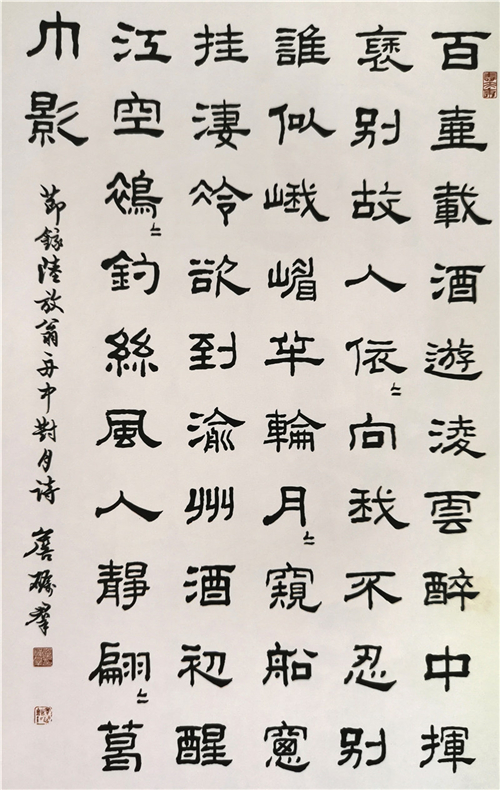 百壷載酒遊淩雲醉中揮
褎别故人依〻向我不忍别
誰似峨嵋半輪月〻窺船窻
挂淒冷欲到渝州酒初醒
江空裊〻釣絲風人靜翩〻葛
巾影
節錄陸放翁舟中對月詩